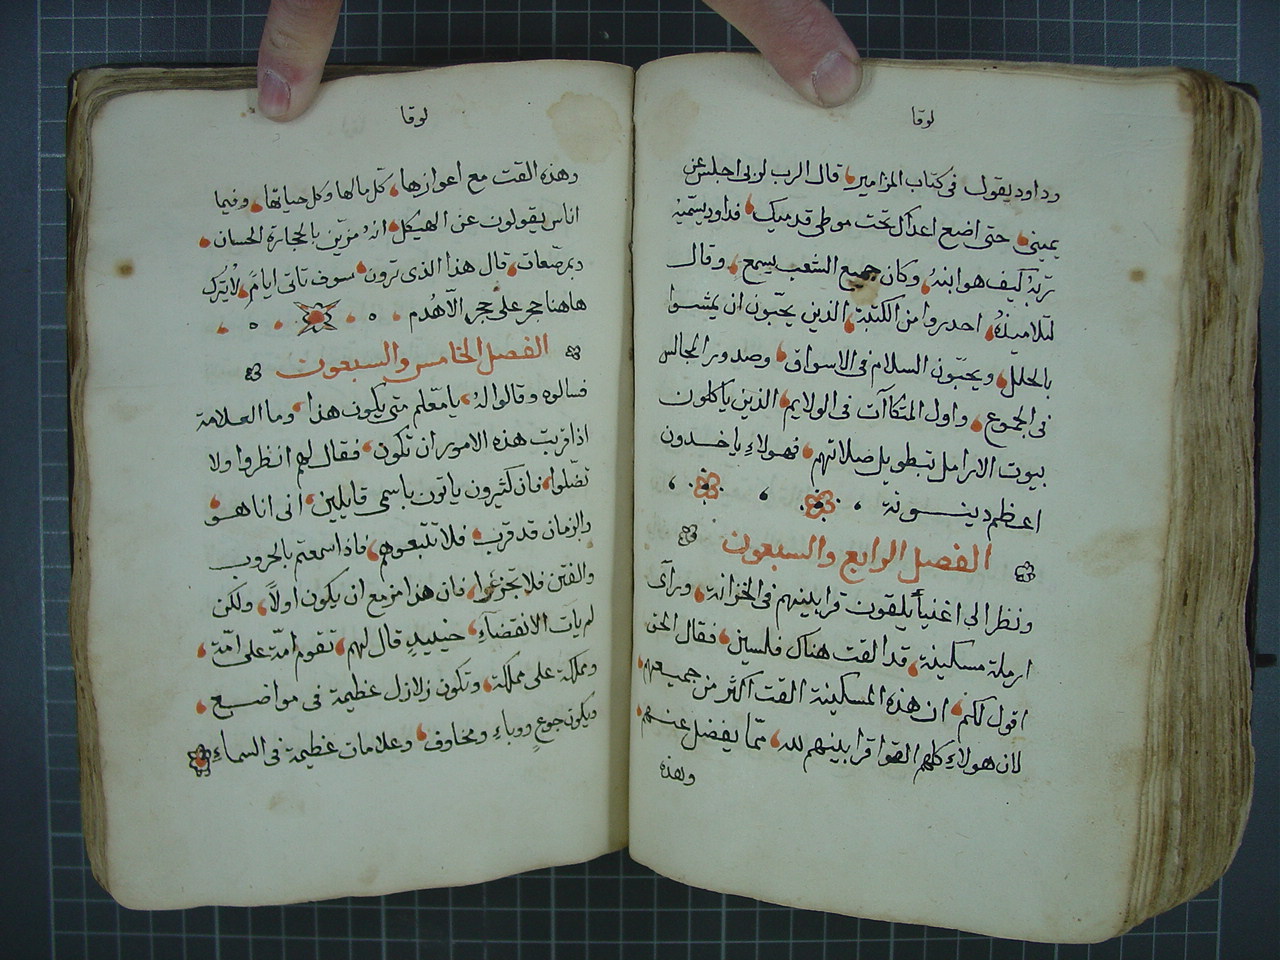 لوقا
وداود يقول في كتاب المزامير، قال الرب لربي اجلس عن
يميني، حتى اضع اعداك تحت موطى قدميك، فداود يسميه
ربه كيف هو ابنه، وكان جميع الشعب يسمع، وقال
لتلاميذه، احدروا من الكتبة، الذين يحبون ان يمشوا
بالحلل، ويحبون السلام في الاسواق، وصدور المجالس
في الجموع، واول المتكآت في الولايم، الذين ياكلون
بيوت الارامل بتطويل صلاتهم، فهولاءِ ياخدون
اعظم دينونة
الفصل الرابع والسبعون
ونظر الى اغنيآ يلقون قرابينهم في الخزانة، ورآى
ارملة مسكينة، قد القت هناك فلسين، فقال الحق
اقول لكم، ان هذه المسكينة القت اكثر من جميعهم،
لان هولاءِ كلهم القوا قرابينهم لله، مما يفضل عنهم،
وهذه
لوقا
وهذه القت مع اعوازها، كل مالها وكل حياتها، وفيما
اناس يقولون عن الهيكل، انه مزين بالحجارة الحسان،
ومرصعات، قال هذا الذي ترون، سوف تاتي ايام، لا يترك
هاهنا حجر على حجر الا هُدم،
الفصل الخامس والسبعون
فسالوه وقالوا له، يا معلم متى يكون هذا، وما العلامة
اذا قربت هذه الامور ان تكون، فقال لهم انظروا ولا
تضلوا، فان كثيرون ياتون باسمى قايلين، انى انا هو،
والزمان قد قرب، فلا تتبعوهم، فاذا سمعتم بالحروب
والفتن فلا تجزعوا، فان هذا مزمع ان يكون اولاً، ولكن
لم يات الانقضآءِ، حينيدٍ قال لهم، تقوم امّة على امّة،
ومملكة على مملكة، وتكون زلازل عظيمة في مواضع،
ويكون جوع ووباءِ ومخاوف، وعلامات عظيمة في السماءِ،